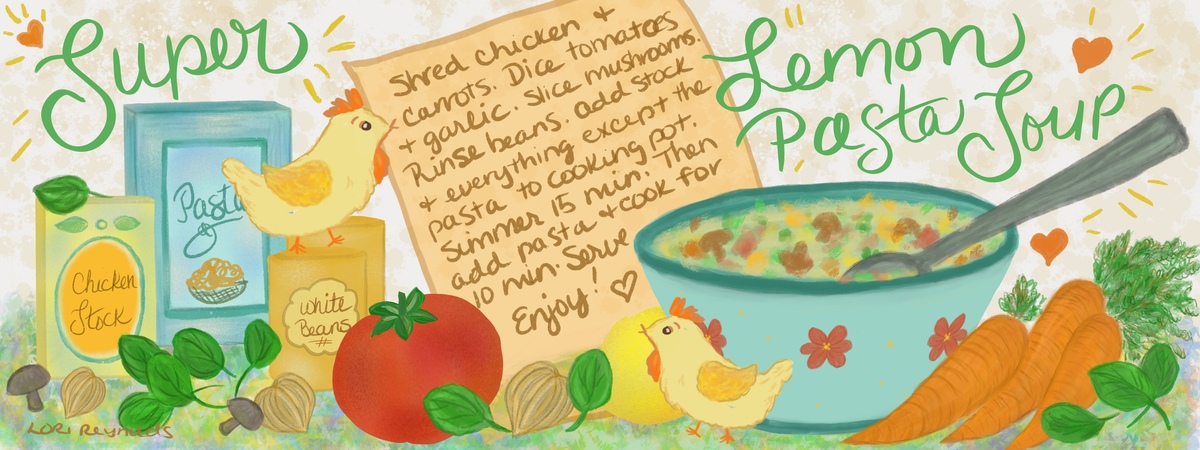 Super
Lemon
Pasta Soup
Shred chicken +
carrots. Dice tomatoes
+ garlic. Slice mushrooms.
Rinse beans. add stock
& everything except the
pasta to cooking pot.
Simmer 15 min. Then
add pasta & cook for
10 min. Serve
Enjoy!
Pasta
Chicken
Stock
White
Beans
#
Lori Reynolds